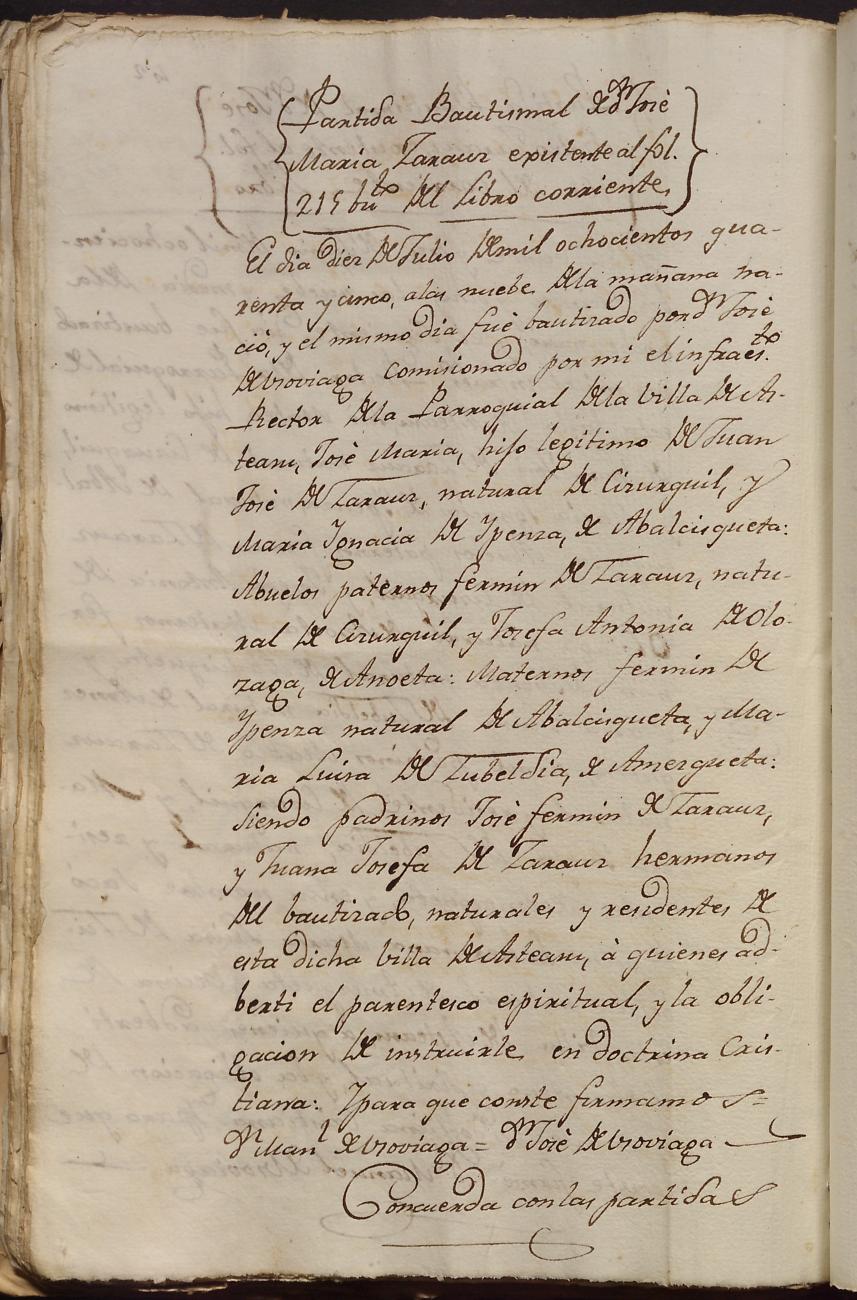 Partida Bautismal de Dn Josè
Maria Zarauz existente al fol.
215 bto del libro corriente,
El dia diez de Julio de mil ochocientos qua-
renta y cinco, a las nuebe de la mañana na-
ció, y el mismo dia fuè bautizado por Dn Josè
de Uroviaga comisionado por mi el infraesto
Rector de la Parroquial de la Villa de As-
teasu, Josè Maria, hijo legitimo de Juan
Josè de Zarauz, natural de Cizurquil, y
Maria Ygnacia de Ypenza, de Abalcisqueta:
Abuelos paternos fermin de Zarauz, natu-
ral de Cizurquil, y Josefa Antonia de Olo-
zaga, de Anoeta: Maternos fermin de
Ypenza natural de Abalcisqueta, y Ma-
ria Luisa de Zubeldia, de Amezqueta:
siendo padrinos Josè fermin de Zarauz,
y Juana Josefa de Zarauz hermanos
del bautizado, naturales y residentes de
esta dicha Villa de Asteasu, à quienes ad-
berti el parentesco espiritual, y la obli-
gacion de instruirle en doctrina Cris-
tiana: Y para que conste firmamos =
Dn Manl de Uroviaga = Dn Josè de Uroviaga
Concuerda con las partidas